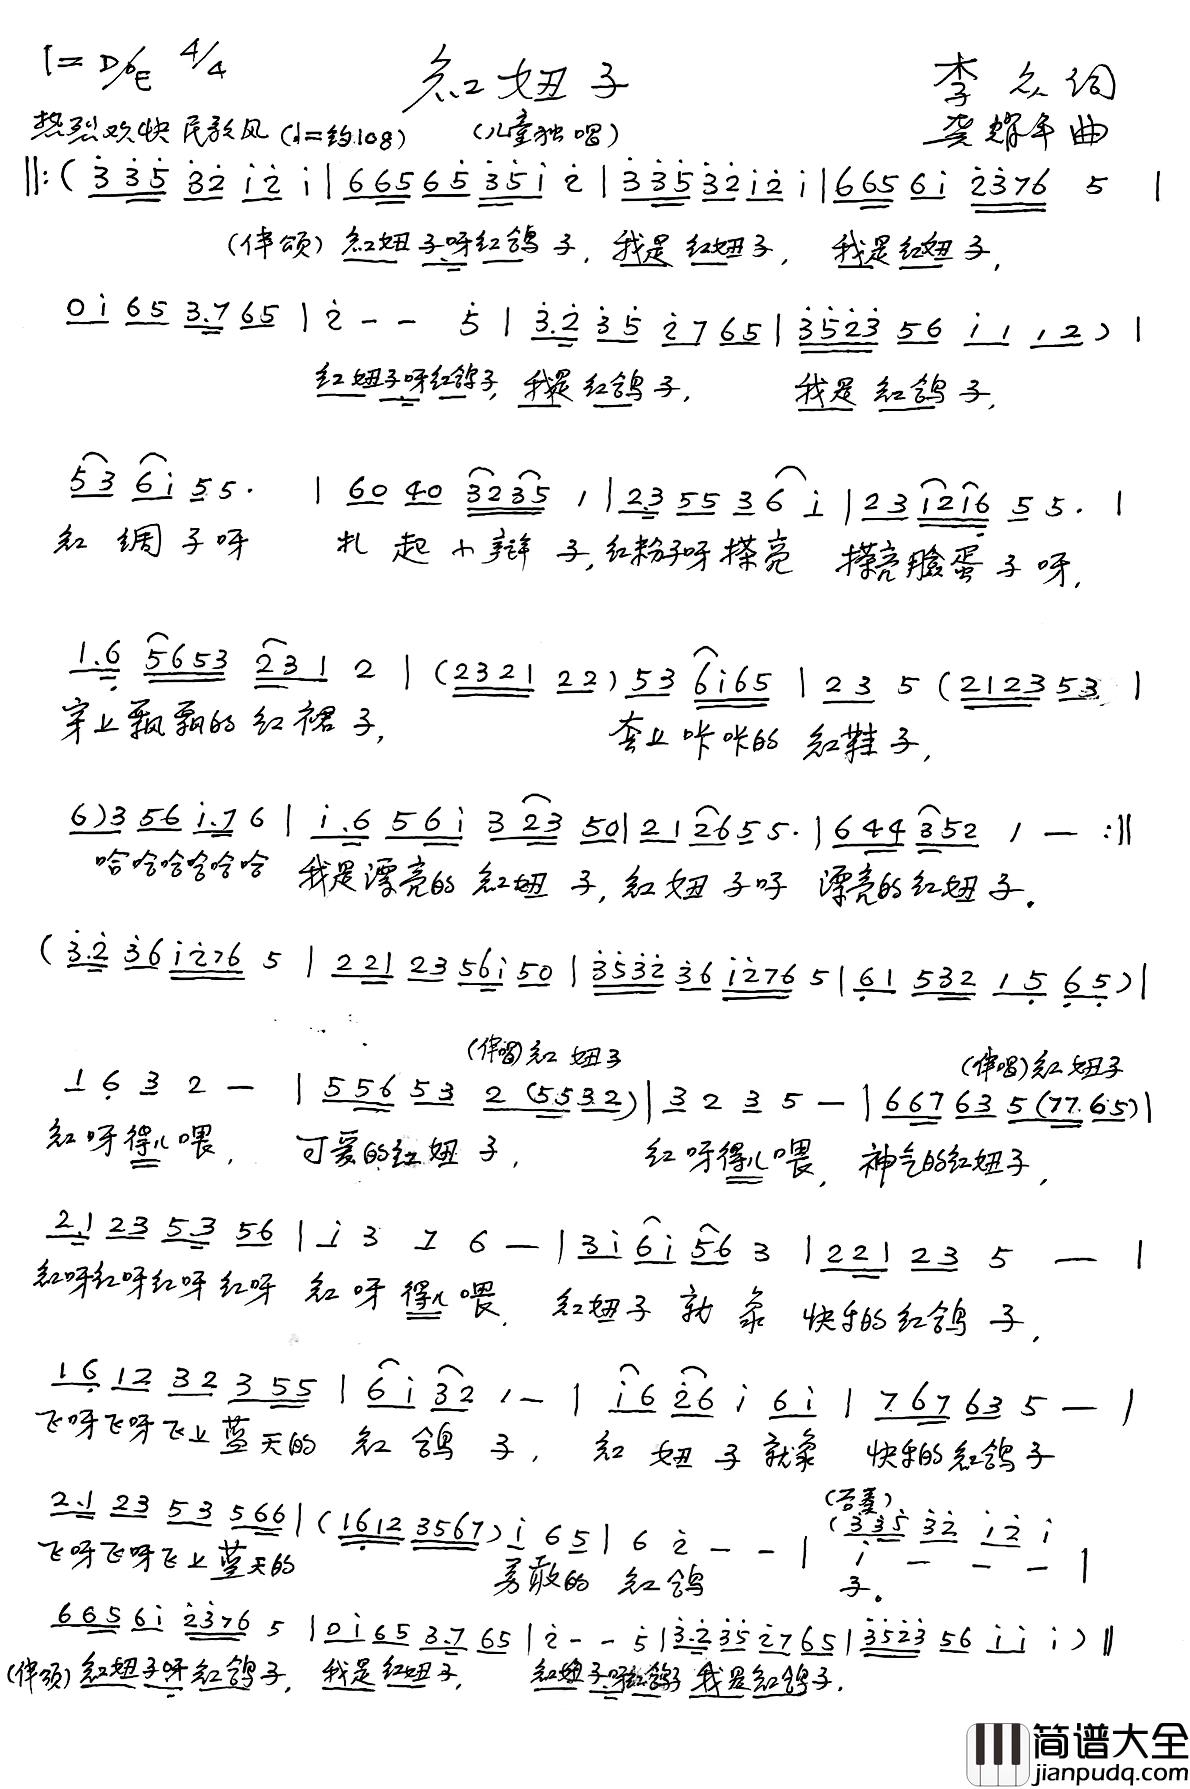 1=D/♭E 4/4 红妞子 李众词
热烈欢快 民歌风 (♩=约108) (儿童独唱) 龚耀年曲
‖:( 3̇ 3̇ 5̇ 3̇2̇ i 2̇ i | 6 6 5 6 5 3̇ 5̇ i 2̇ | 3̇ 3̇ 5̇ 3̇ 2̇ i 2̇ i | 6 6 5 6 i 2̇ 3̇ 7 6 5 |
(伴颂) 红妞子呀红鸽子, 我是红妞子, 我是红妞子,
0 i 6 5 3.7 6 5 | 2̇ - - 5̇ | 3̇.2̇ 3̇ 5̇ 2̇ 7 6 5 | 3̇ 5̇ 2̇ 3̇ 5 6 i 1 1 2 ) |
红妞子呀红鸽子, 我是红鸽子, 我是红鸽子,
5 3 6 i 5 5. | 6 0 4 0 3 2 3 5 1 | 2 3 5 5 3 6 i | 2 3 i 2 i 6 5 5. |
红绸子呀 扎起小辫子, 红粉子呀搽亮 搽亮脸蛋子呀,
1.6 5 6 5 3 2 3 1 2 | (2 3 2 1 2 2) 5 3 6 i 6 5 | 2 3 5 (2 1 2 3 5 3 |
穿上飘飘的红裙子, 套上咔咔的红鞋子,
6) 3 5 6 i.7 6 | i.6 5 6 i 3 2 3 5 0 | 2 1 2 6 5 5. | 6 4 4 3 5 2 1 — :‖
哈哈哈哈哈哈 我是漂亮的红妞子, 红妞子呀 漂亮的红妞子。
(3̇.2̇ 3̇ 6 i 2̇ 7 6 5 | 2 2 1 2 3 5 6 i 5 0 | 3̇ 5̇ 3̇ 2̇ 3̇ 6 i 2̇ 7 6 5 | 6 1 5 3 2 1 5 6 5 ) |
(伴唱) 红妞子 (伴唱) 红妞子
1 6 3 2 — | 5 5 6 5 3 2 (5 5 3 2) | 3 2 3 5 — | 6 6 7 6 3 5 (7 7. 6 5) |
红呀得儿喂, 可爱的红妞子, 红呀得儿喂, 神气的红妞子,
2.1 2 3 5 3 5 6 | i 3 7 6 — | 3 i 6 i 5 6 3 | 2 2 1 2 3 5 — |
红呀红呀红呀红呀 红呀得儿喂, 红妞子就象 快乐的红鸽子,
1 6 1 2 3 2 3 5 5 | 6 i 3 2 1 — | i 6 2̇ 6 i 6 i | 7 6 7 6 3 5 — |
飞呀飞呀飞上蓝天的 红鸽子, 红妞子就象 快乐的红鸽子
2.1 2 3 5 3 5 6 6 | (1 6 1 2 3 5 6 7) i 6 5 | 6 2̇ - - | i - - - |
(合奏) (3̇ 3̇ 5̇ 3̇ 2̇ i 2̇ i
飞呀飞呀飞上蓝天的 勇敢的红鸽 子。
6 6 5 6 i 2̇ 3̇ 7 6 5 | 0 i 6 5 3.7 6 5 | 2̇ - - 5̇ | 3̇.2̇ 3̇ 5̇ 2̇ 7 6 5 | 3̇ 5̇ 2̇ 3̇ 5 6 i i i ) ‖
(伴颂) 红妞子呀红鸽子, 我是红妞子, 红妞子呀红鸽子 我是红鸽子.
简谱大全
jianpudq.com